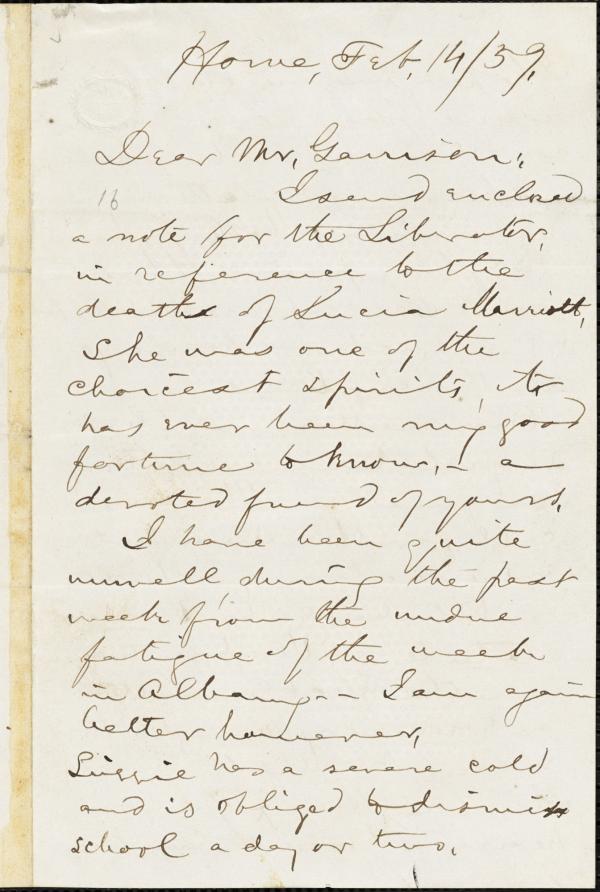 Home, Feb, 14/59,
Dear Mr, Garrison;
16
I send enclosed
a note for the Liberator,
in reference to the
death of Lucia Marriott,
She was one of the
choicest spirits, it
has ever been my good
fortune to know, – a
devoted friend of yours.
I have been quite
unwell during the past
week from the undue
fatigue of the week
in Albany -- I am again
better however,
Lizzie has a severe cold
and is obliged to dismiss
school a day or two,